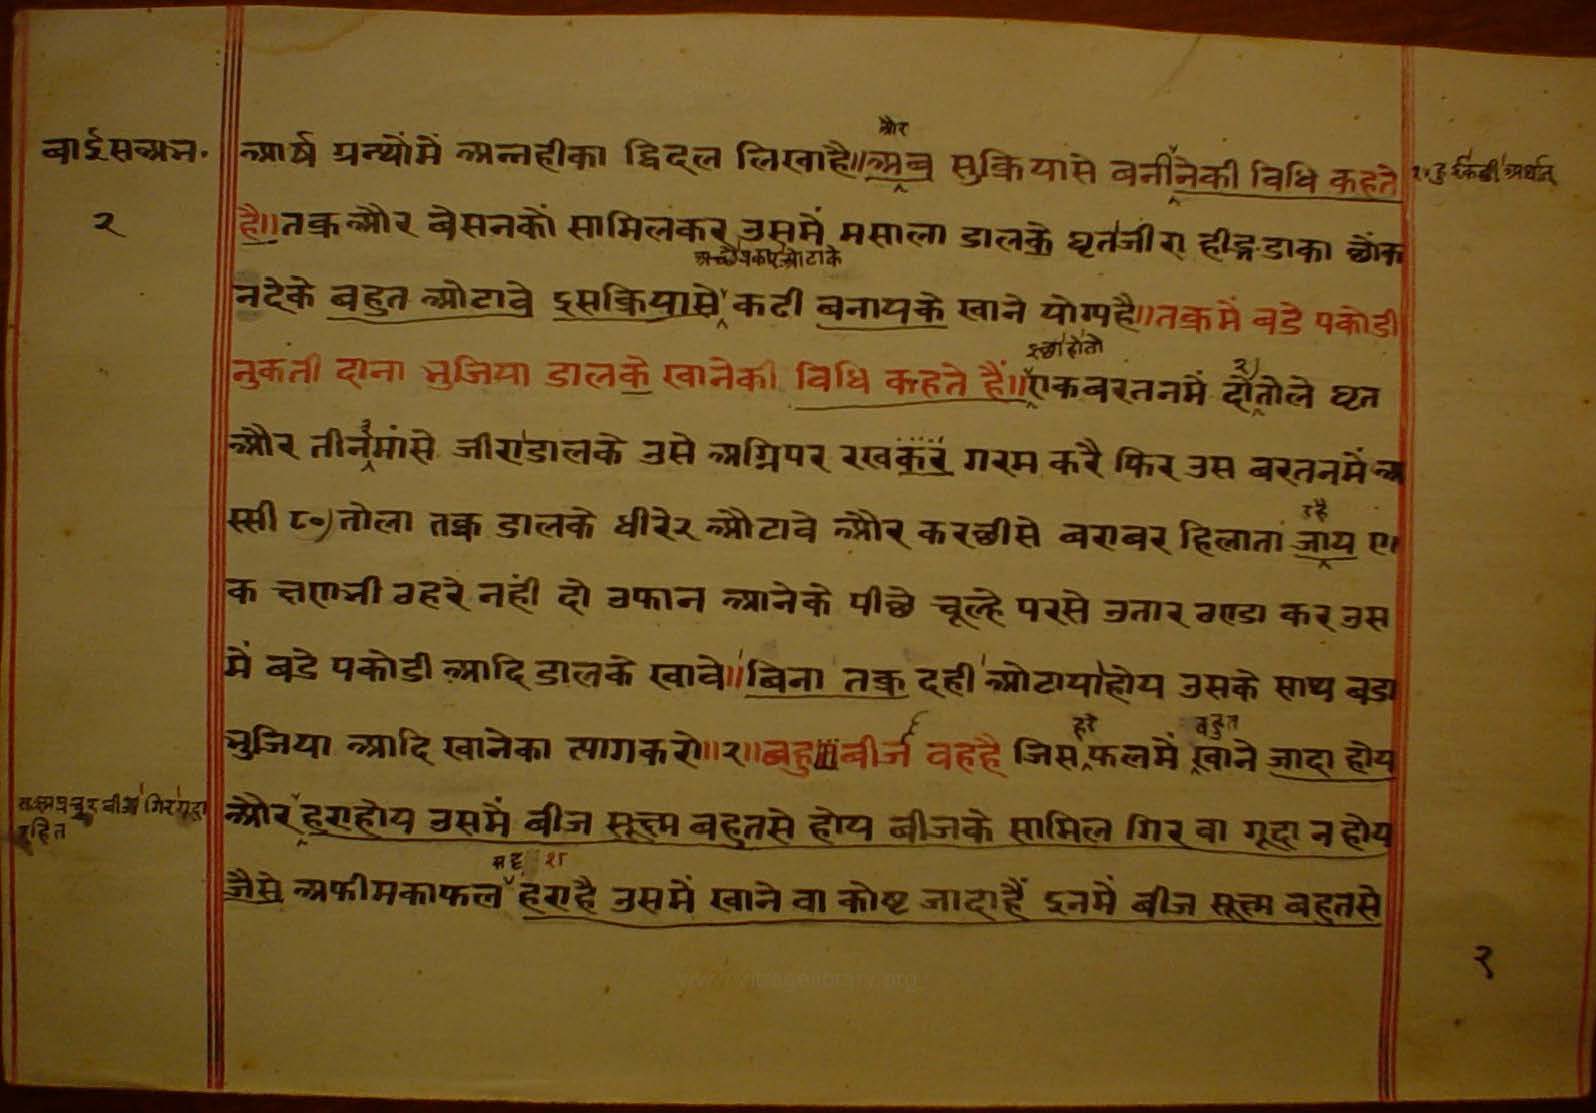 बाईसअभ.
२
और
आर्ष ग्रन्थोंमें अन्नहीका द्विदल लिखाहै॥अब सुक्रियासे बनानेकी विधि कहते
है॥तक्र और बेसनकों सामिलकर उसमें मसाला डालके घृत जीरा हीङ्ग डाका छोंक
नदेके बहुत ओटावे इसक्रियासे कढी बनायके खाने योग्यहै॥तक्रमें बडे पकोडी
नुकती दाना भुजिया डालके खानेकी विधि कहते हैं॥एकबरतनमें दोतोले घृत
और तीनमांसे जीराडालके उसे अग्निपर रखकर गरम करै फिर उस बरतनमें अ
स्सी ८०)तोला तक्र डालके धीरे२ औटावे और करछीसे बराबर हिलाता जाय ए
रहै
क क्षणभी ठहरे नहीं दो उफान आनेके पीछे चूल्हे परसे उतार ठण्डा कर उस
में बडे पकोडी आदि डालके खावे॥बिना तक्र दही ओटायाहोय उसके साथ बडा
भुजिया आदि खानेका त्यागकरो॥२॥बहु बीज वहहै जिस फलमें खाने जादा होय
हरे बहुत
और हराहोय उसमें बीज सूक्ष्म बहुतसे होय बीजके सामिल गिर वा गूदा न होय
रहित
जैसे अफीमकाफल हराहै उसमें खाने वा कोष्ट जादाहैं इनमें बीज सूक्ष्म बहुतसे
२